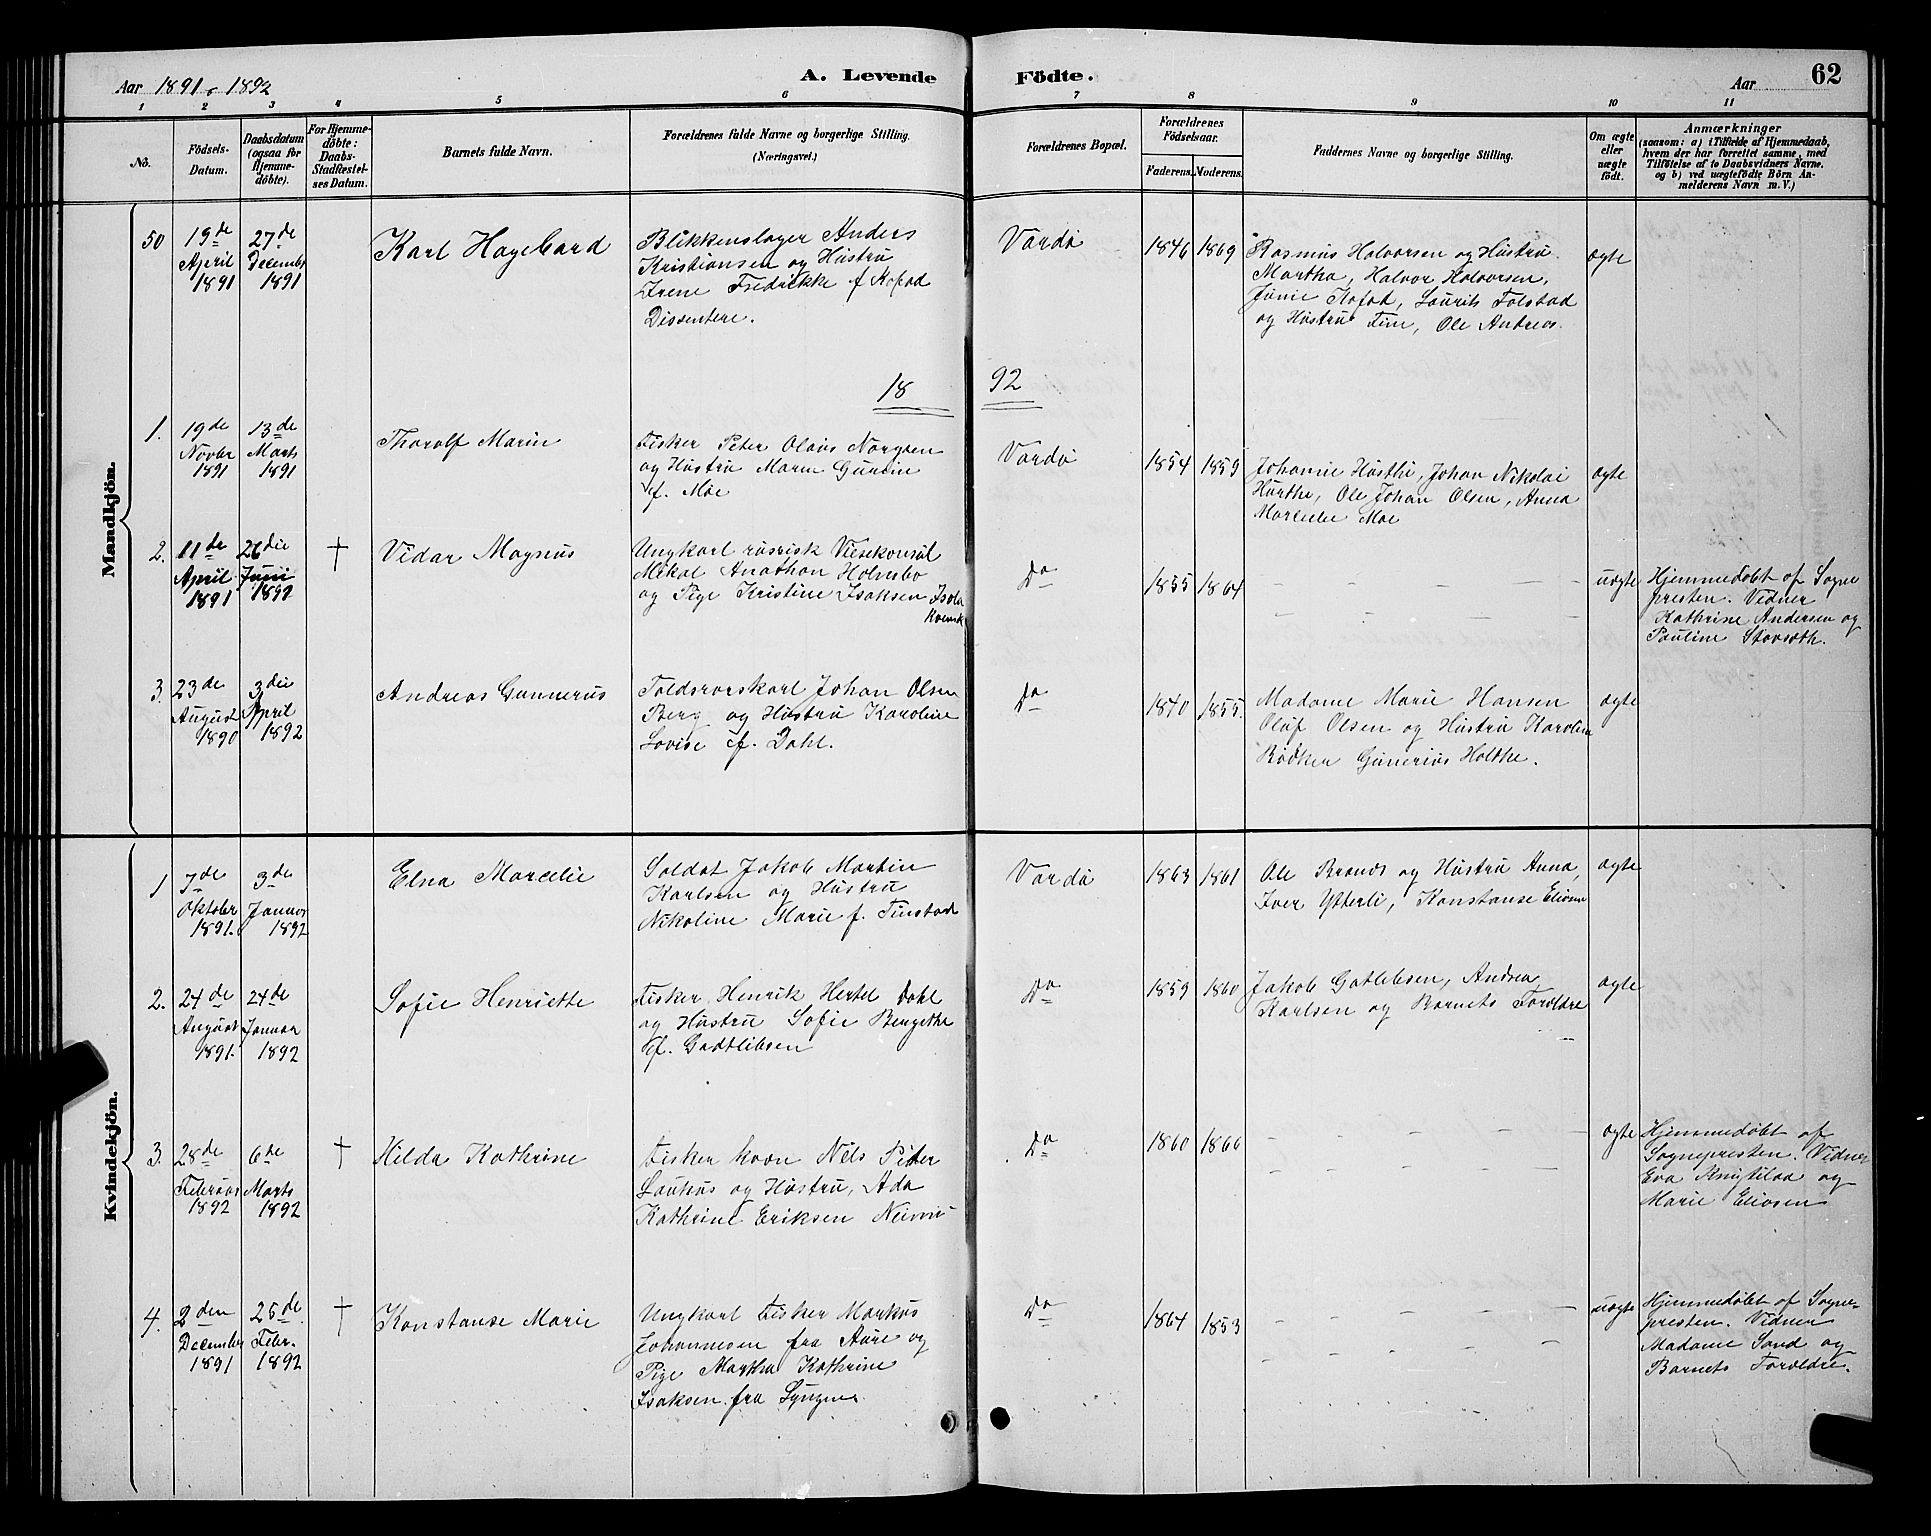 Aar 1891 & 1892
A. Levende Födte.
Aar
62
1 2 3 4 5 6 7 8 9 10 11
No.
Födsels-
Datum.
Daabsdatum
(ogsaa for
Hjemme-
döbte).
For Hjemme-
döbte:
Daabs-
Stadfæstel-
ses Datum.
Barnets fulde Navn.
Forældrenes fulde Navne og borgerlige Stilling.
(Næringsvei.)
Forældrenes Bopæl.
Forældrenes
Födselsaar.
Faderens. Moderens.
Faddernes Navne og borgerlige Stilling.
Om ægte
eller
uægte
födt.
Anmærkninger
(saasom: a) i Tilfælde af Hjemmedaab,
hvem der har forrettet samme, med
Tilföielse af to Daabsvidners Navne,
og b) ved uægtefödte Börn An-
melderens Navn m. V.)
Mandkjön.
50
19de
April
1891
27de
Decembr
1891
Karl Hagebard
Blikkenslager Anders
Kristiansen og Hustru
Irene Fredrikke f Kofod
Dissentere.
Vardö
1846 1869
Rasmus Halvorsen og Hustru
Martha, Halvor Halvorsen,
Junie Kofod, Laurits Folstad
og Hustru Fine, Ole Andreas.
ægte
1892
1.
19de
Novbr
1891
13de
Marts
1891
Thorolf Marin
Fisker Peter Olaus Norgren
og Hustru Maren Gurine
f. Moe
Vardö
1854 1859
Johanne Hurthi, Johan Nikolai
Hurthe, Ole Johan Olsen, Anna
Marcelie Moe
ægte
2.
11de
April
1891
26die
Juni
1892
†
Vidar Magnus
Ungkarl russisk Visekonsul
Mikal Anathon Holmbo
og Pige Kristine Isaksen Isola
Kvensk
Do
1855 1864
uægte
Hjemmedöbt af Sogne
presten. Vidner
Kathrine Andersen og
Pauline Storsæth.
3.
23de
August
1890
3die
April
1892
Andreas Gunnerus
Toldrorskarl Johan Olsen
Berg og Hustru Karoline
Lovise f. Dahl.
Do
1840 1855.
Madame Marie Hansen
Oluf Olsen og Hustru Karoline
Bödker Gunerius Holthe.
ægte
Kvindekjön.
1
7de
Oktober
1891.
3de
Januar
1892
Elna Marcelie
Soldat Jakob Martin
Karlsen og Hustru
Nikoline Marie f. Finstad
Vardö
1863 1861
Ole Brands og Hustru Anna,
Iver Ytterli, Konstanse Eliasen
ægte
2.
24de
August
1891.
24de
Januar
1892
Sofie Henriette
Fisker Henrik Hertel Dahl
og Hustru Sofie Bengethe
f. Gadtlibsen
Do
1859 1860
Jakob Gatlibsen, Andrea
Karlsen og Barnets Foreldre
ægte
3.
28de
Februar
1892
6de
Marts
1892
†
Hilda Kathrine
Fisker kvæn Nils Peter
Lauhus og Hustru, Ada
Kathrine Eriksen Neimi
Do
1860 1866
ægte
Hjemmedöbt af
Sognepresten. Vidner
Eva Knigtilaa og
Marie Eliasen
4.
2den
December
1891
25de
Febr.
1892
†
Konstanse Marie
Ungkarl Fisker Markus
Johannesen fra Aure og
Pige Martha Kathrine
Isaksen fra Lyngen.
Do
1864 1853
uægte
Hjemmedöbt af Sogne-
presten. Vidner
Madame Sand og
Barnets Foreldre.